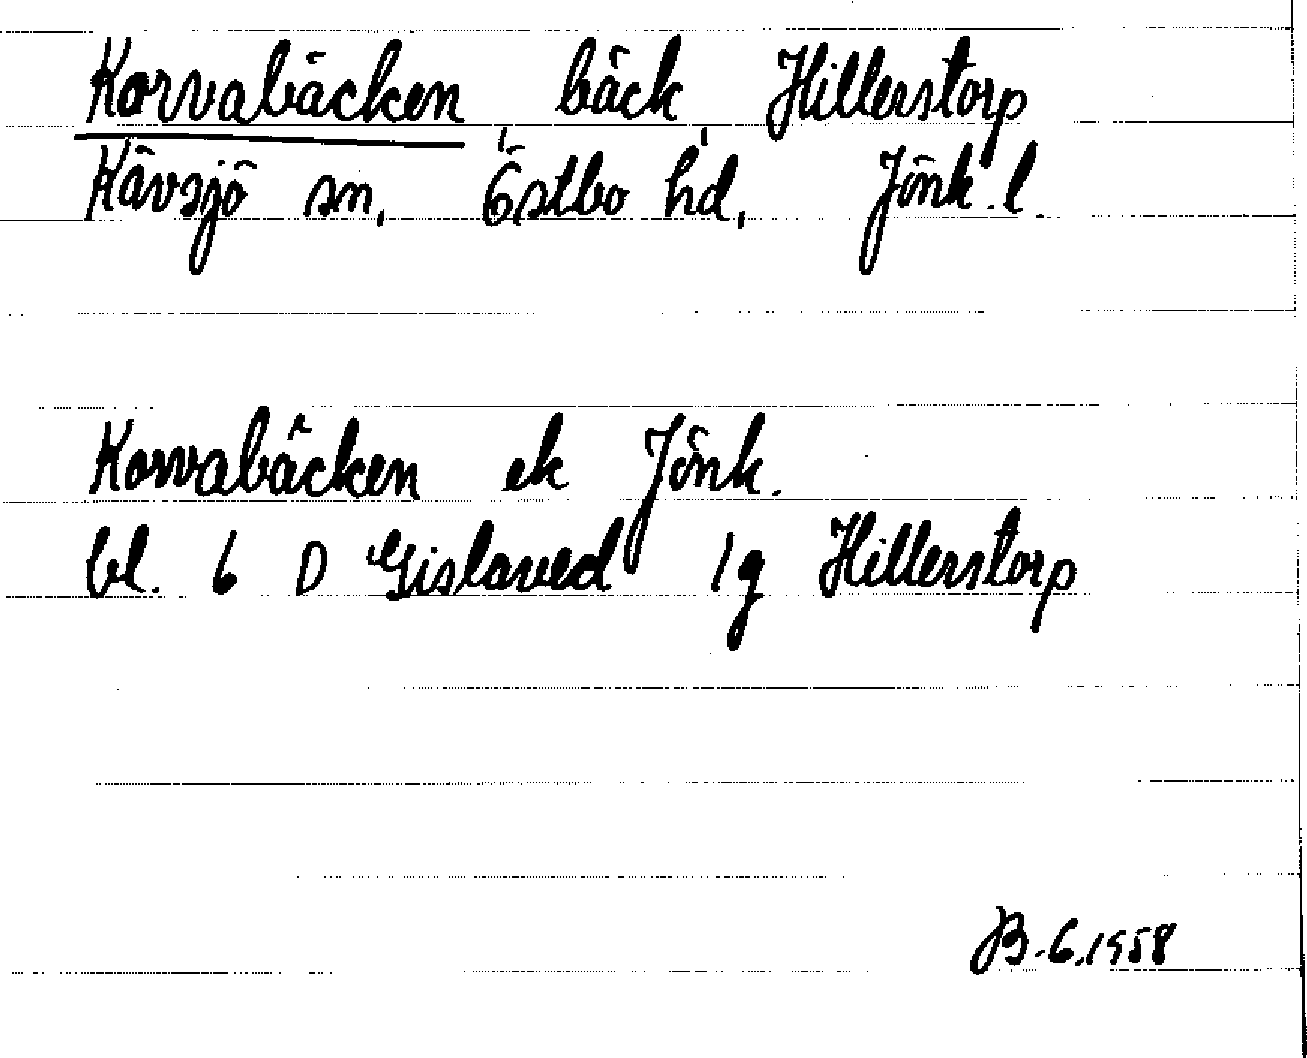 Korvabäcken, bäck, Hillerstorp
Kävsjö sn, Östbo hd, Jönk. l.
Korvabäcken ek Jönk.
bl. 6 D Gislaved 1g Hillerstorp
JB.6.1958